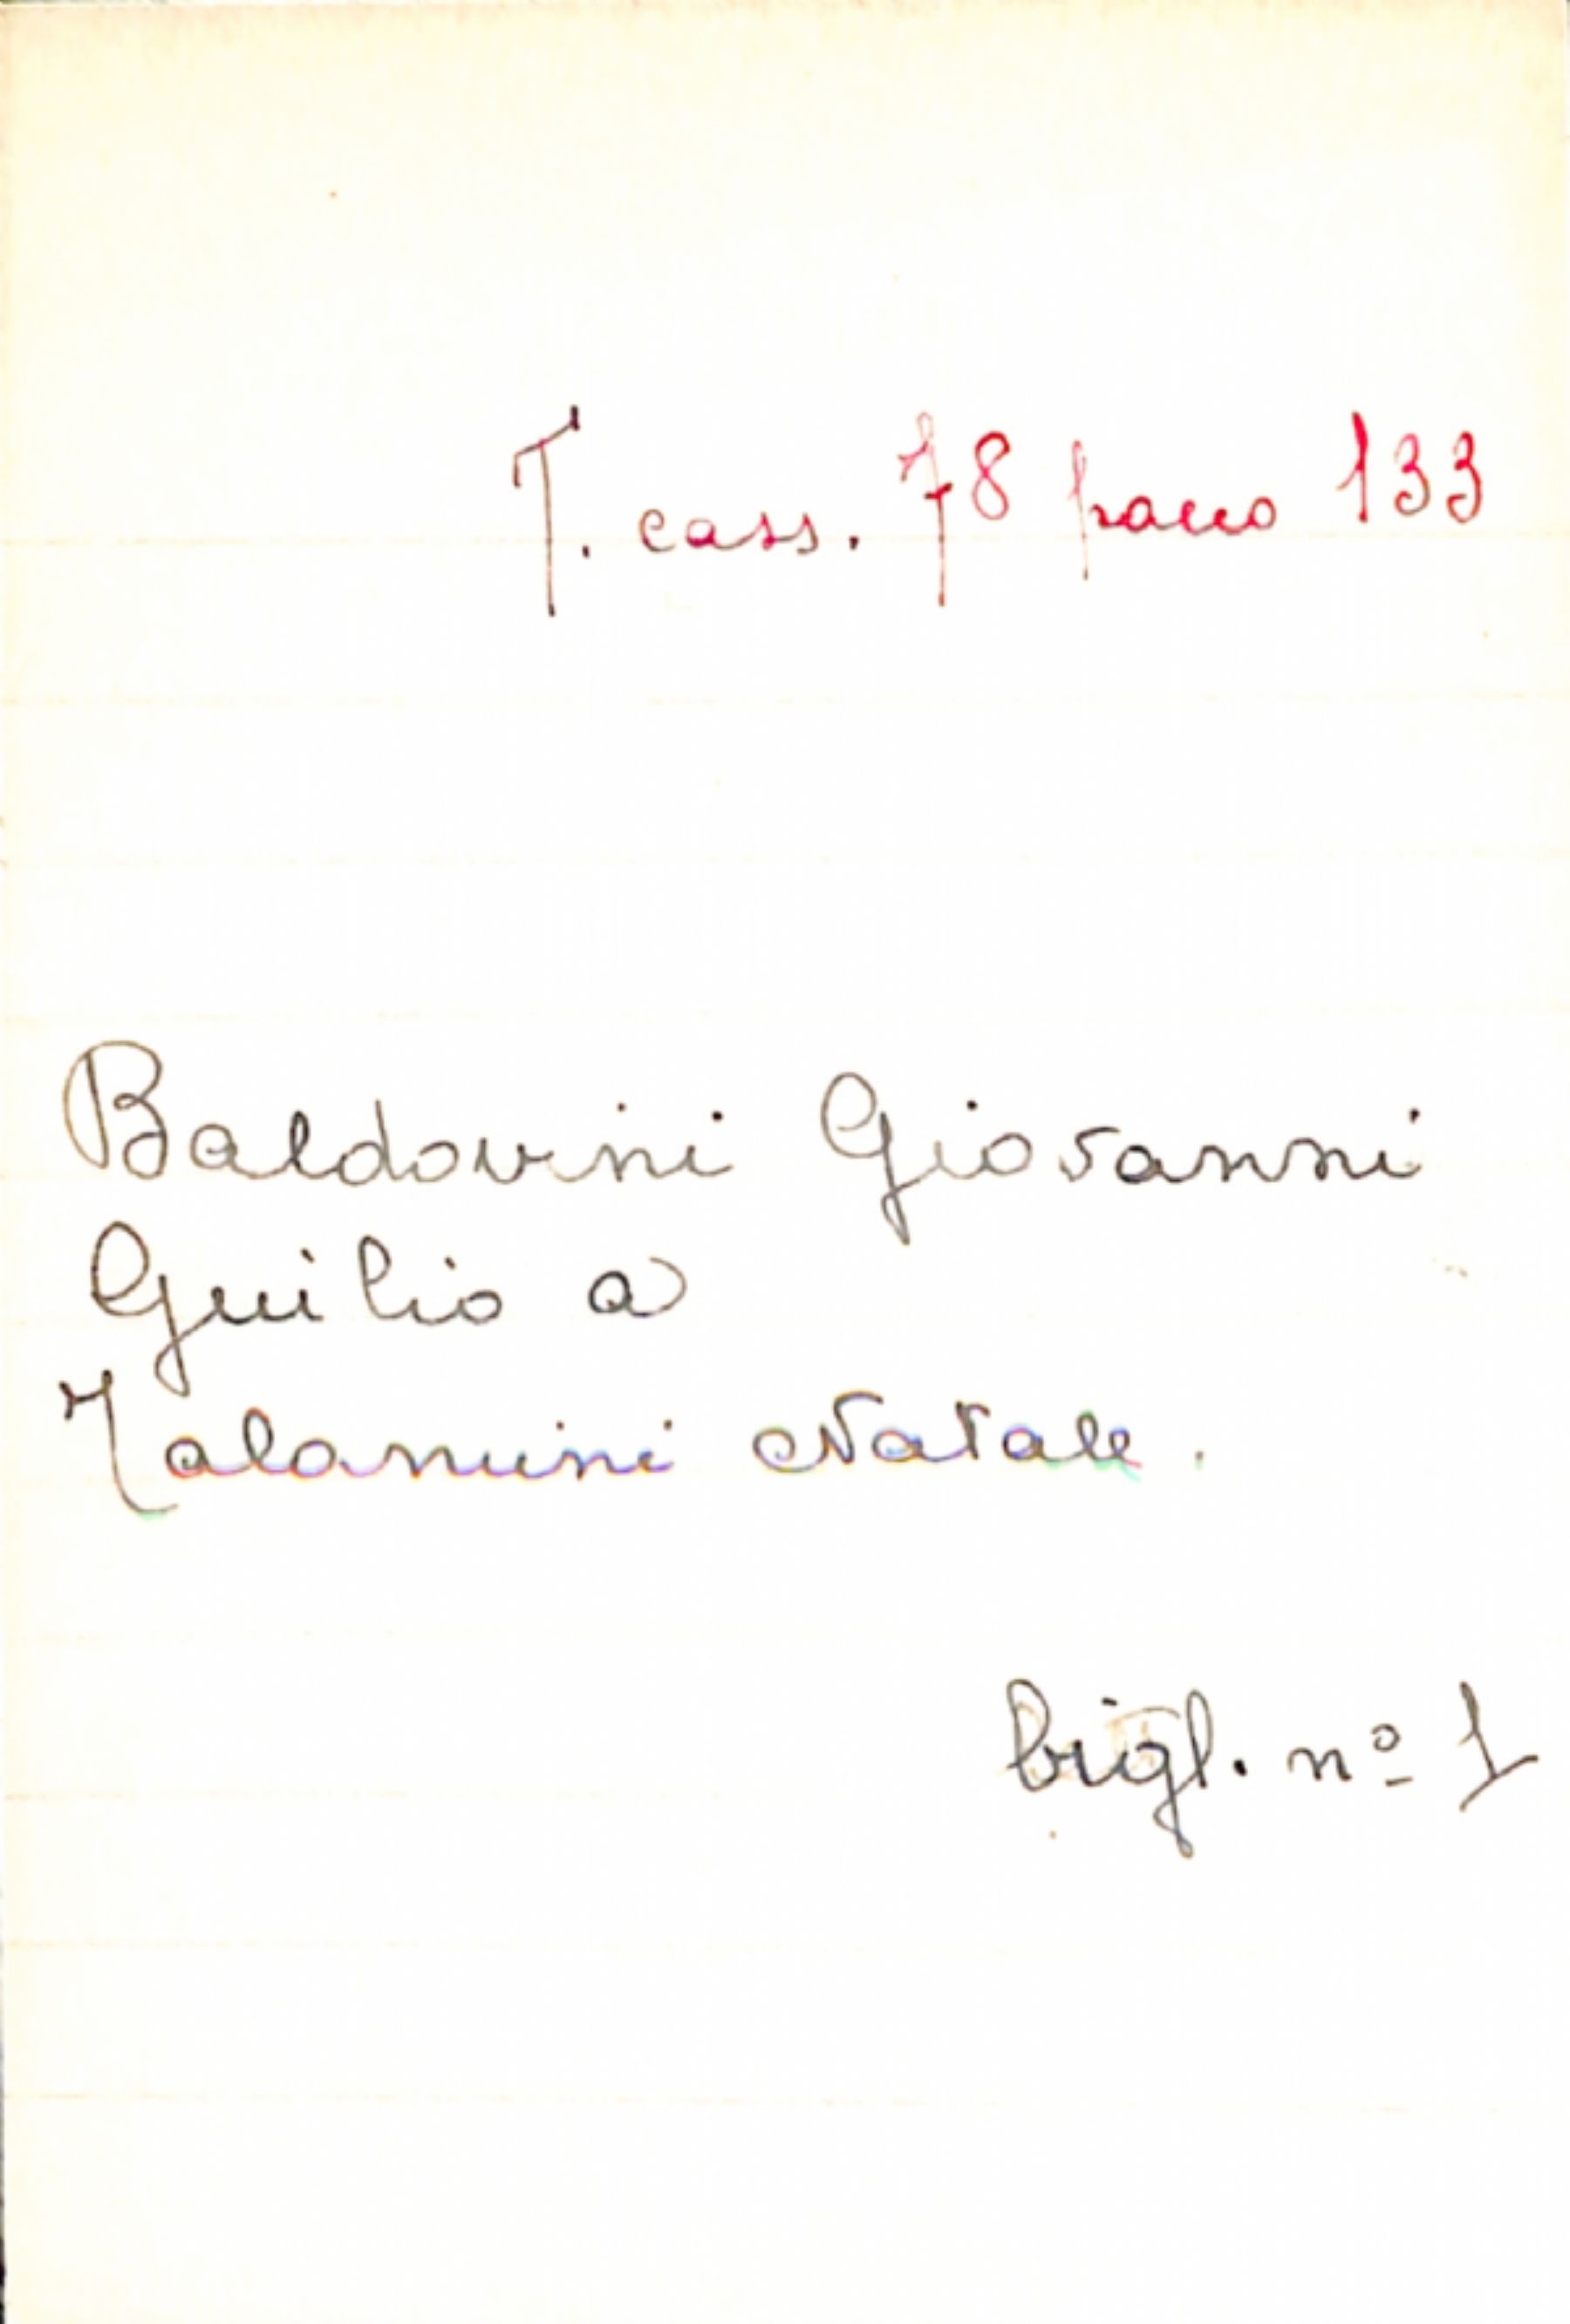 T. cass. 78 pacco 133
Baldovini Giovanni
Guilio a
Talamini Natale.
bigl. nº 1